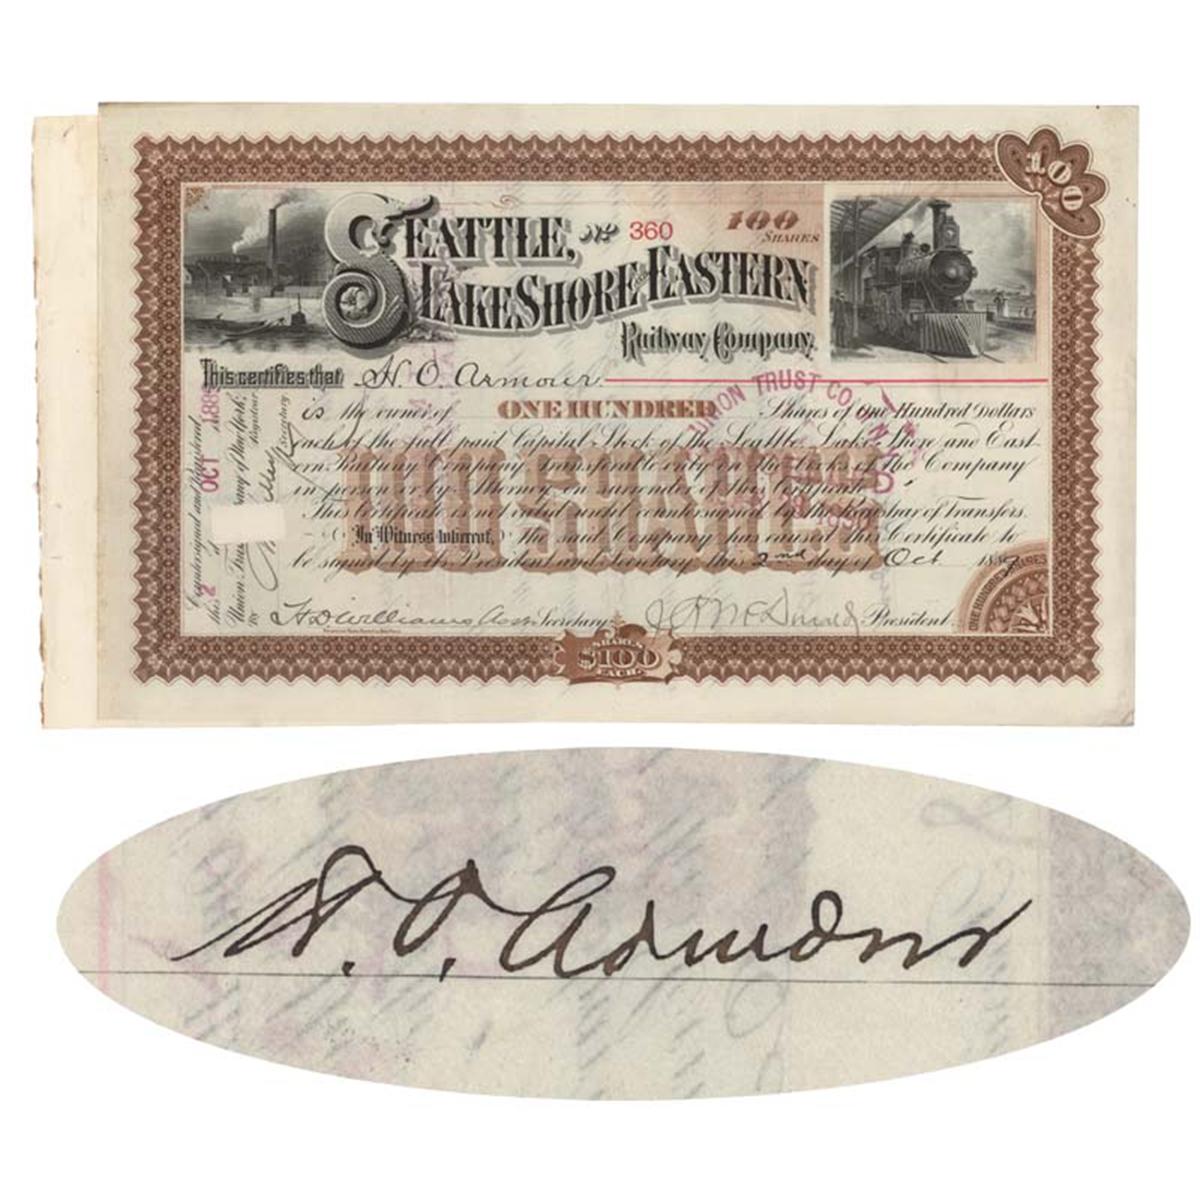 SEATTLE, No 360 100 SHARES
LAKE SHORE AND EASTERN
Railway Company.
100
This certifies that H. O. Armour
is the owner of ONE HUNDRED Shares of One Hundred Dollars
each of the full paid Capital Stock of the Seattle, Lake Shore and East-
ern Railway Company transferable only on the books of the Company
in person or by Attorney on surrender of this Certificate.
This Certificate is not valid until countersigned by the Registrar of Transfers.
In Witness Whereof, the said Company has caused this Certificate to
be signed by its President and Secretary this 2nd day of Oct 188
H D Williams Asst Secretary. President.
100 SHARES
SHARES
$100
EACH
Countersigned and Registered
this 2 of OCT 188
Union Trust Company of New York,
Registrar
by Secretary
UNION TRUST CO. OF N.Y.
H. O. Armour